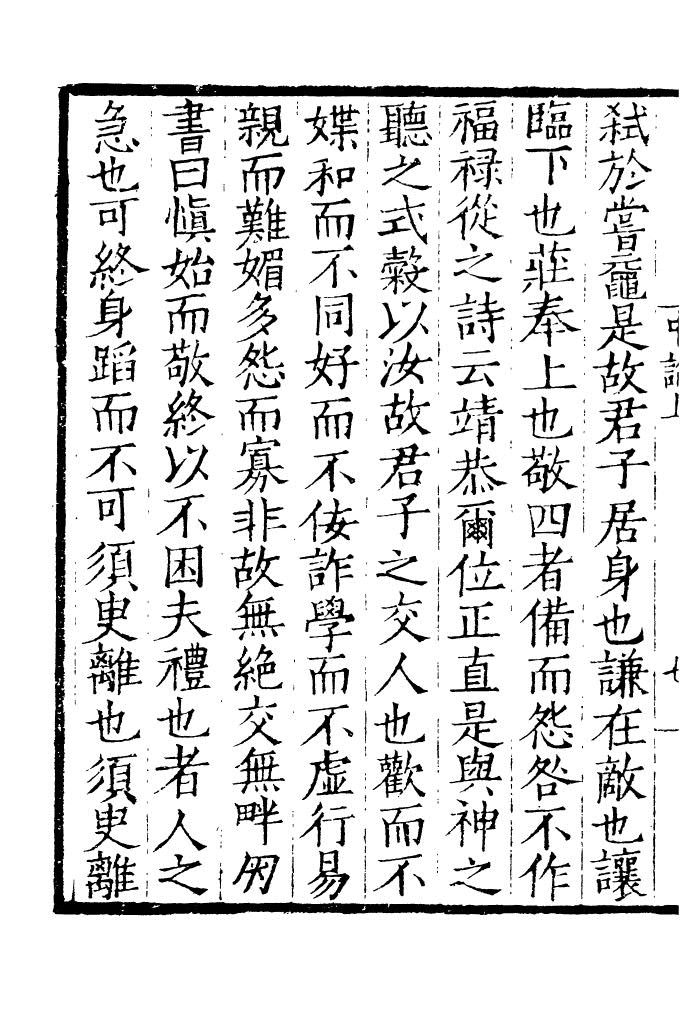 弑於嘗黿是故君子居身也謙在敵也讓
臨下也莊奉上也敬四者備而怨咎不作
福祿從之詩云靖恭爾位正直是與神之
聽之式榖以汝故君子之交人也歡而不
媟和而不同好而不佞詐學而不虛行易
親而難媚多怨而寡非故無絶交無畔朋
書曰愼始而敬終以不困夫禮也者人之
急也可終身蹈而不可須臾離也須臾離